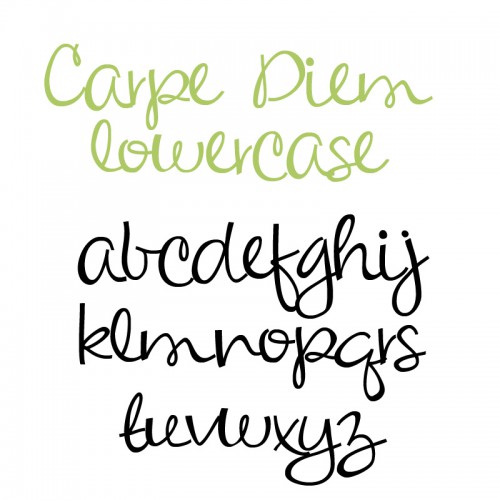 Carpe Diem
lowercase
abcdefghij
klmnopqrs
tuvwxyz